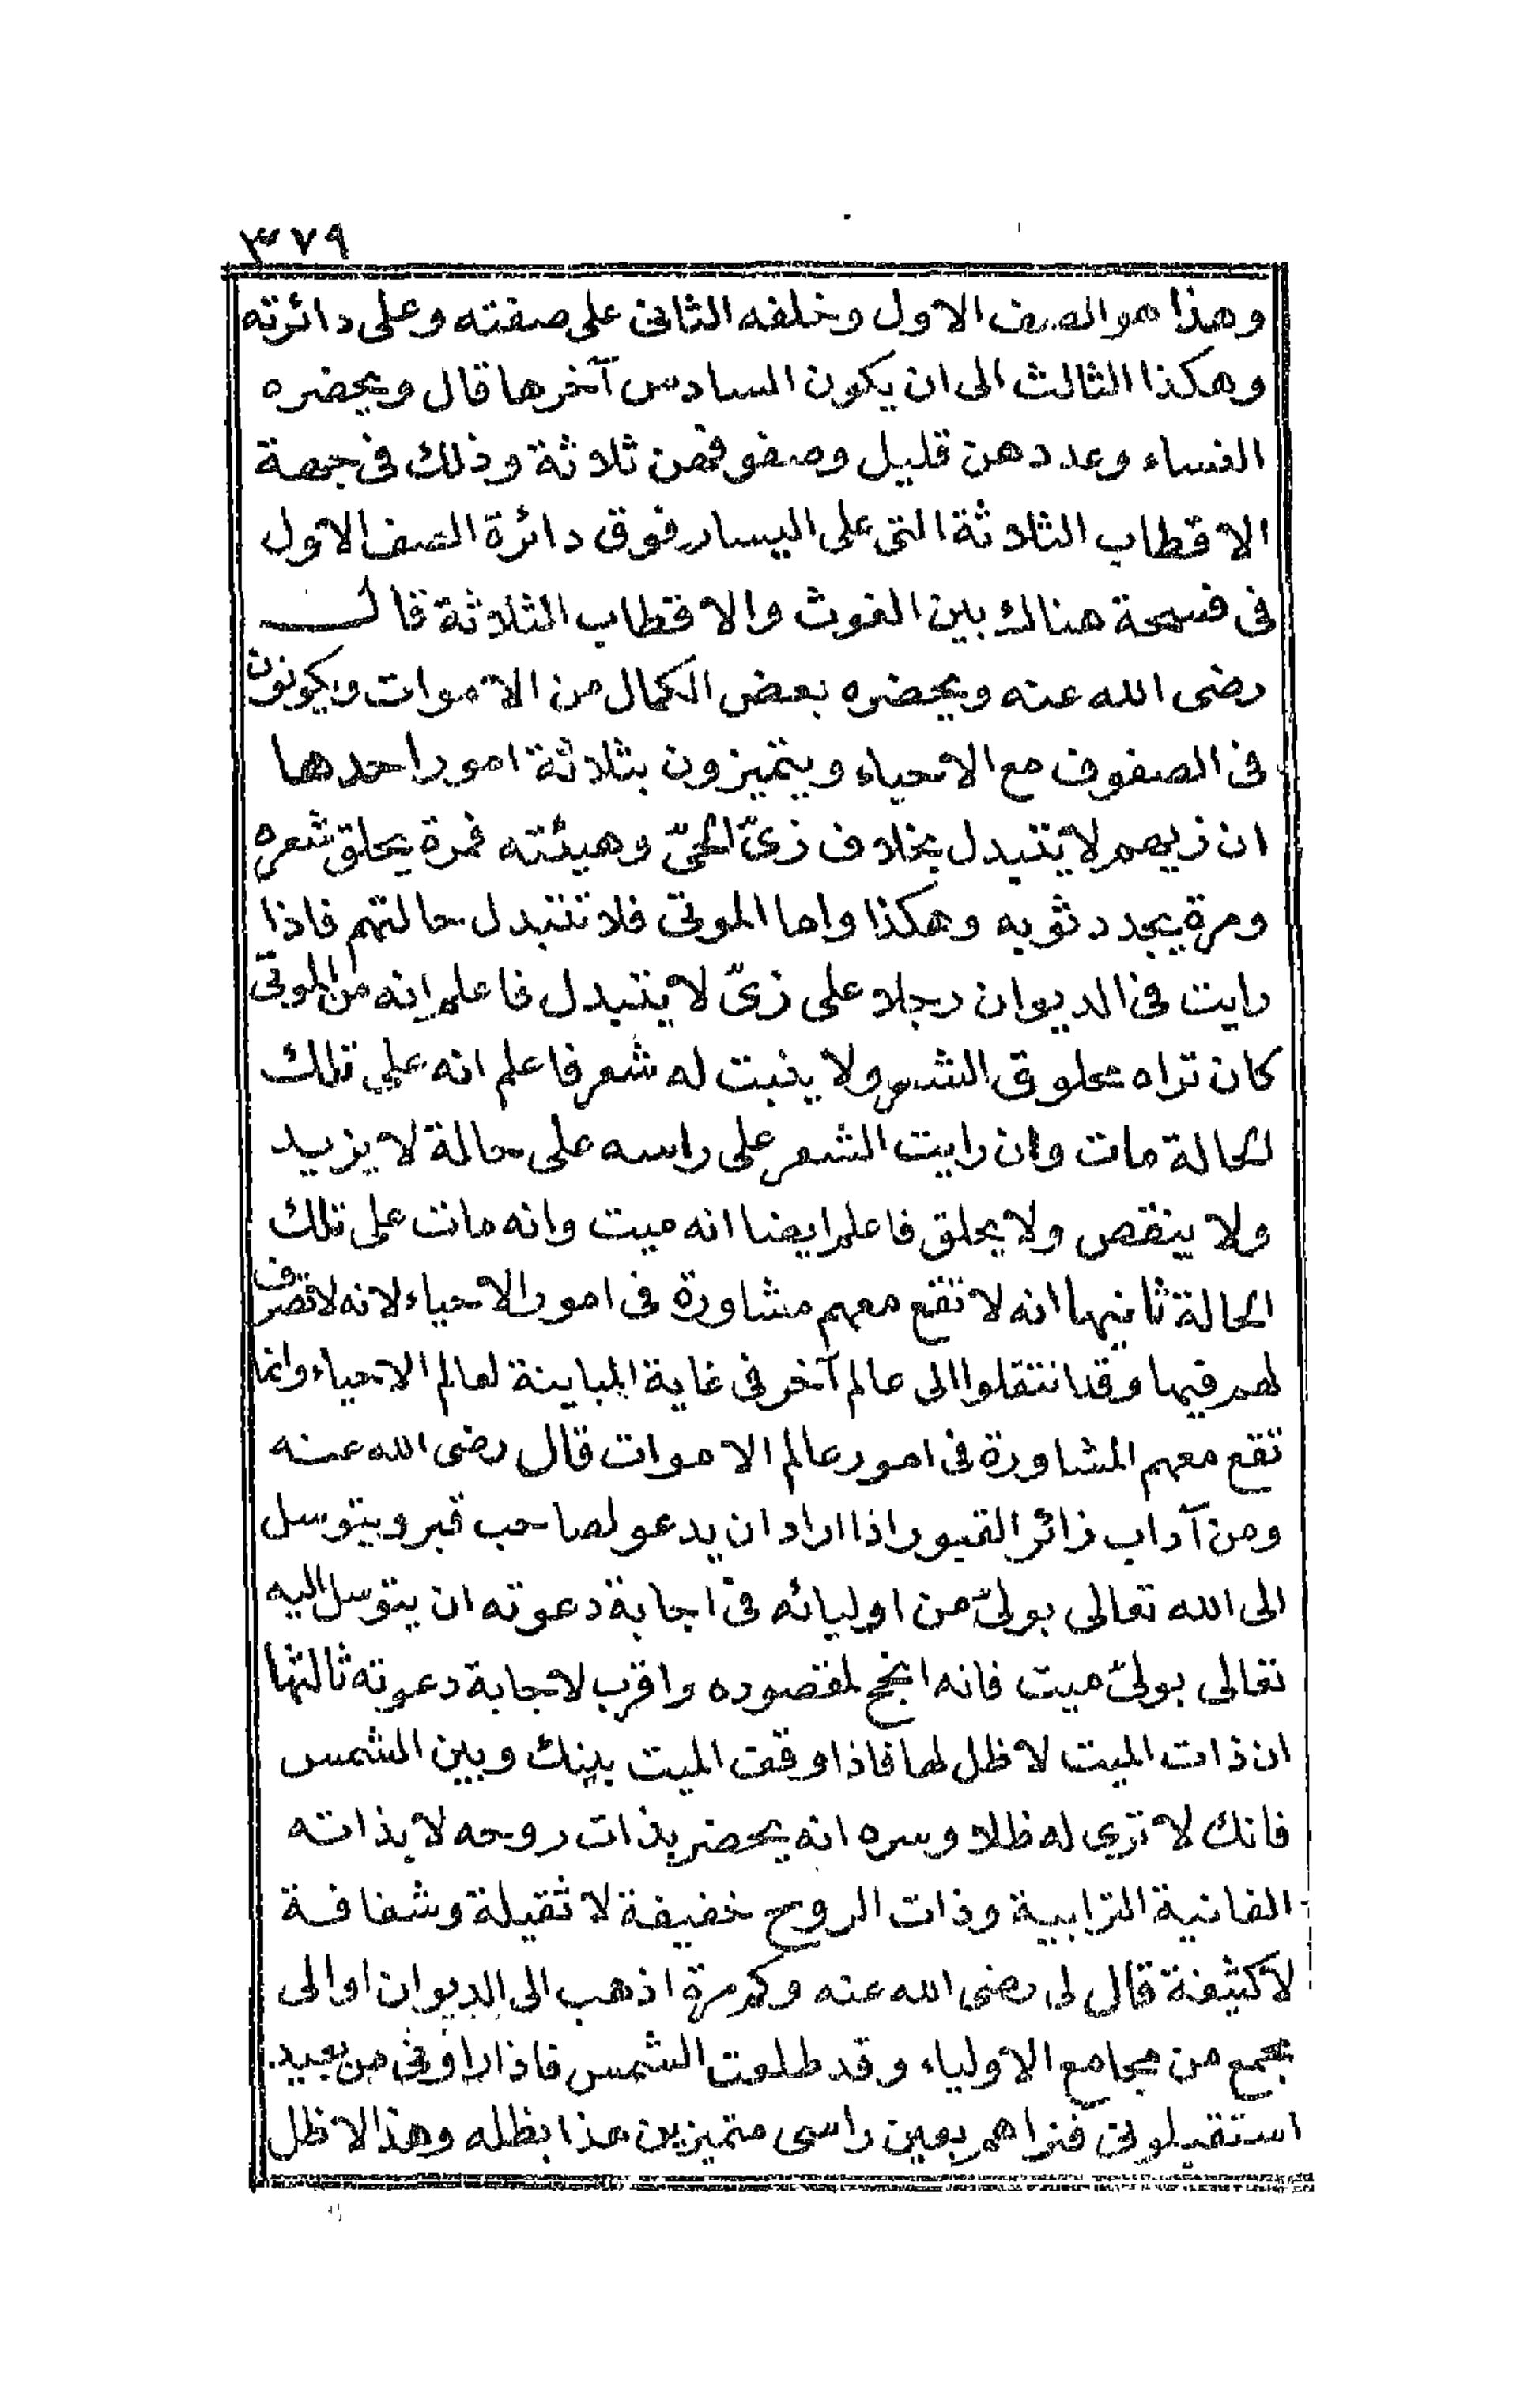 ٣٧٩
وهذا هو الصف الاول وخلفه الثانى على صفته وعلى دائرته
وهكذا الثالث الى ان يكون السادس آخرها قال ويحضره
النساء وعددهن قليل وصفوفهن ثلاثة وذلك فى جهة
الاقطاب الثلاثة التى على اليسار فوق دائرة الصف الاول
فى فسحة هناك بين الغوث والاقطاب الثلاثة قال
رضى الله عنه ويحضره بعض الكمال من الاموات ويكونون
فى الصفوف مع الاحياء ويتميزون بثلاثة امور احدها
ان زيهم لا يتبدل بخلاف زىّ الحىّ وهيئته فمرة يحلق شعره
ومرة يجدد ثوبه وهكذا واما الموتى فلا تتبدل حالتهم فاذا
رايت فى الديوان رجلا على زىّ لا يتبدل فاعلم انه من الموتى
كان تراه محلوق الشعر ولا ينبت له شعر فاعلم انه على تلك
الحالة مات وان رايت الشعر على راسه على حالة لا يزيد
ولا ينقص ولا يحلق فاعلم ايضا انه ميت وانه مات على تلك
الحالة ثانيها انه لا تقع معهم مشاورة فى امور الاحياء لانه لا تصرف
لهم فيها وقد انتقلوا الى عالم آخر فى غاية المباينة لعالم الاحياء وانما
تقع معهم المشاورة فى امور عالم الاموات قال رضى الله عنه
ومن آداب زائر القبور اذا اراد ان يدعو لصاحب قبر ويتوسل
الى الله تعالى بولىّ من اوليائه فى اجابة دعوته ان يتوسل اليه
تعالى بولىّ ميت فانه انجح لمقصوده واقرب لاجابة دعوته ثالثها
ان ذات الميت لا ظل لها فاذا وقف الميت بينك وبين الشمس
فانك لا ترى له ظلا وسره انه يحضر بذات روحه لا بذاته
الفانية الترابية وذات الروح خفيفة لا ثقيلة وشفافة
لا كثيفة قال لى رضى الله عنه وكم مرة اذهب الى الديوان او الى
مجمع من مجامع الاولياء وقد طلعت الشمس فاذا راونى من بعيد
استقبلونى فنراهم بعين راسى متميزين هذا بظله وهذا لا ظل